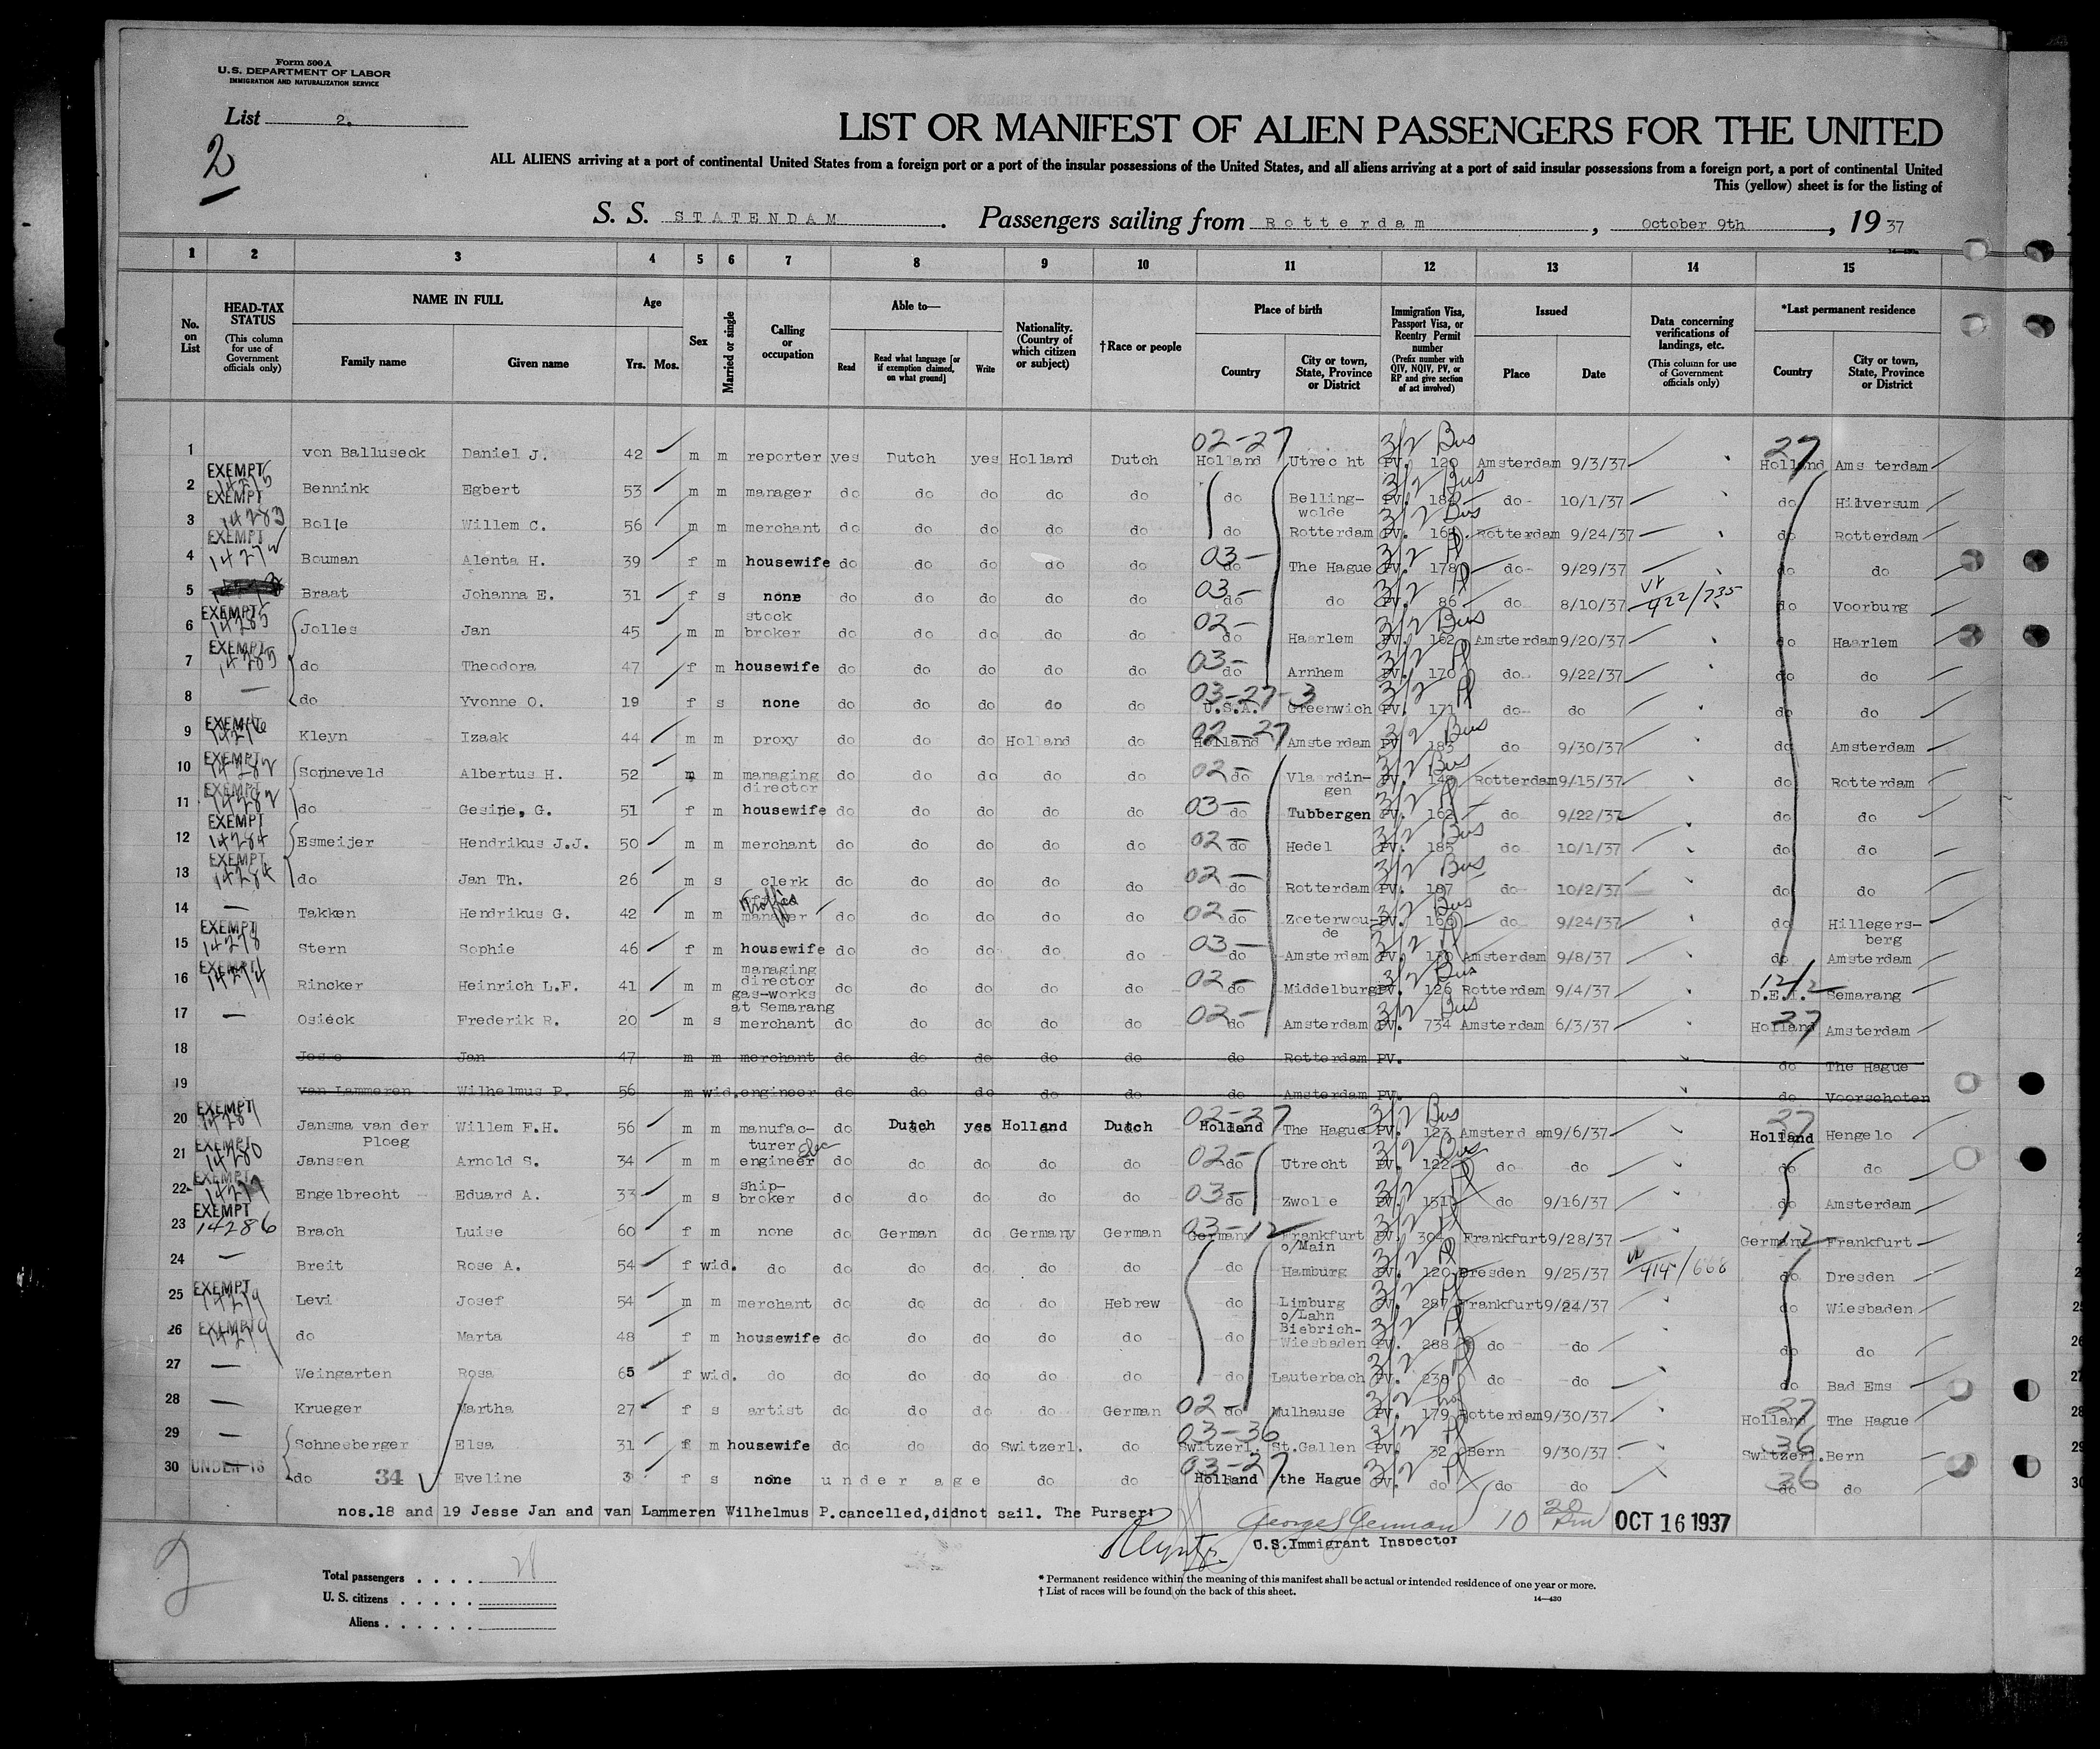 Form 500 A
U. S. DEPARTMENT OF LABOR
IMMIGRATION AND NATURALIZATION SERVICE
List 2.
2
LIST OR MANIFEST OF ALIEN PASSENGERS FOR THE UNITED
ALL ALIENS arriving at a port of continental United States from a foreign port or a port of the insular possessions of the United States, and all aliens arriving at a port of said insular possessions from a foreign port, a port of continental United
This (yellow) sheet is for the listing of
S. S. STATENDAM. Passengers sailing from Rotterdam, October 9th, 19 37
1 2 3 4 5 6 7 8 9 10 11 12 13 14 15
No. on List
HEAD-TAX STATUS (This column for use of Government officials only)
NAME IN FULL Family name Given name
Age Yrs. Mos.
Sex
Married or single
Calling or occupation
Able to— Read Read what language [or if exemption claimed, on what ground] Write
Nationality. (Country of which citizen or subject)
†Race or people
Place of birth Country City or town, State, Province or District
Immigration Visa, Passport Visa, or Reentry Permit number (Prefix number with QIV, NQIV, PV, or RP and give section of act involved)
Issued Place Date
Data concerning verifications of landings, etc. (This column for use of Government officials only)
*Last permanent residence Country City or town, State, Province or District
1 von Balluseck Daniel J. 42 m m reporter yes Dutch yes Holland Dutch 02-27 Holland Utrecht 3/2 Bus PV. 120 Amsterdam 9/3/37 27 Holland Amsterdam
2 EXEMPT Bennink Egbert 53 m m manager do do do do do do Belling-wolde 3/2 Bus PV. do 10/1/37 do Hilversum
3 EXEMPT 14283 Bolle Willem C. 56 m m merchant do do do do do do Rotterdam 3/2 Bus PV. Rotterdam 9/24/37 do Rotterdam
4 EXEMPT Bouman Alenta H. 39 f m housewife do do do do do 03- do The Hague 3/2 Pl PV. 178 do 9/29/37 do do
5 Braat Johanna E. 31 f s none do do do do do 03- do do 3/2 Pl PV. 86 do 8/10/37 422/735 do Voorburg
6 EXEMPT 14285 Jolles Jan 45 m m stock broker do do do do do 02- do Haarlem 3/2 Bus PV. 162 Amsterdam 9/20/37 do Haarlem
7 EXEMPT 14285 do Theodora 47 f m housewife do do do do do 03- do Arnhem 3/2 Pl PV. 170 do 9/22/37 do do
8 — do Yvonne O. 19 f s none do do do do do 03-27-3 U.S.A. Greenwich 3/2 Pl PV. 171 do do do do
9 EXEMPT Kleyn Izaak 44 m m proxy do do do Holland do 02-27 Holland Amsterdam 3/2 Bus PV 183 do 9/30/37 do Amsterdam
10 EXEMPT 14282 Sonneveld Albertus H. 52 m m managing director do do do do do 02- do Vlaardin-gen 3/2 Bus PV. Rotterdam 9/15/37 do Rotterdam
11 EXEMPT 14282 do Gesine, G. 51 f m housewife do do do do do 03- do Tubbergen 3/2 Pl PV. 162 do 9/22/37 do do
12 EXEMPT 14284 Esmeijer Hendrikus J.J. 50 m m merchant do do do do do 02- do Hedel 3/2 Bus PV. 185 do 10/1/37 do do
13 EXEMPT 14284 do Jan Th. 26 m s clerk do do do do do 02- do Rotterdam 3/2 Bus PV. 187 do 10/2/37 do do
14 — Takken Hendrikus G. 42 m m Traffic manager do do do do do 02- do Zoeterwou-de 3/2 Bus PV. do 9/24/37 do Hillegers-berg
15 EXEMPT 14278 Stern Sophie 46 f m housewife do do do do do 03- do Amsterdam 3/2 Pl PV. 130 Amsterdam 9/8/37 do Amsterdam
16 EXEMPT 14274 Rincker Heinrich L.F. 41 m m managing director gas-works at Semarang do do do do do 02- do Middelburg 3/2 Bus PV. 126 Rotterdam 9/4/37 D.E.I. Semarang
17 — Osieck Frederik R. 20 m s merchant do do do do do 02- do Amsterdam 3/2 Bus PV. 734 Amsterdam 6/3/37 27 Holland Amsterdam
18 Jesse Jan 47 m m merchant do do do do do do Rotterdam PV. do The Hague
19 van Lammeren Wilhelmus P. 56 m wid. engineer do do do do do do Amsterdam PV. do Voorschoten
20 EXEMPT 14281 Jansma van der Ploeg Willem F.H. 56 m m manufac-turer do Dutch yes Holland Dutch 02-27 Holland The Hague 3/2 Bus PV. 123 Amsterdam 9/6/37 27 Holland Hengelo
21 EXEMPT 14280 Janssen Arnold S. 34 m m elec engineer do do do do do 02- do Utrecht 3/2 Bus PV. 122 do do do do
22 EXEMPT Engelbrecht Eduard A. 33 m s ship-broker do do do do do 03- do Zwolle 3/2 Pl PV. 151 do 9/16/37 do Amsterdam
23 EXEMPT 14286 Brach Luise 60 f m none do German do Germany German 03-12 Germany Frankfurt o/Main 3/2 Pl PV. 304 Frankfurt 9/28/37 12 Germany Frankfurt
24 — Breit Rose A. 54 f wid. do do do do do do do Hamburg 3/2 Pl PV. 120 Dresden 9/25/37 414/668 do Dresden
25 EXEMPT 14279 Levi Josef 54 m m merchant do do do do Hebrew do Limburg o/Lahn 3/2 Pl PV. 287 Frankfurt 9/24/37 do Wiesbaden
26 EXEMPT 14279 do Marta 48 f m housewife do do do do do do Biebrich-Wiesbaden 3/2 Pl PV. 288 do do do do
27 — Weingarten Rosa 65 f wid. do do do do do do do Lauterbach 3/2 Pl PV. 239 do do do Bad Ems
28 — Krueger Martha 27 f s artist do do do do German 02- do Mulhause 3/2 PV. 179 Rotterdam 9/30/37 27 Holland The Hague
29 — Schneeberger Elsa 31 f m housewife do do do Switzerl. do 03-36 Switzerl. St.Gallen 3/2 Pl PV. 32 Bern 9/30/37 36 Switzerl. Bern
30 UNDER 16 do 34 Eveline 3 f s none under age do do 03-27 Holland the Hague 3/2 Pl PV. do do do 36 do do
nos.18 and 19 Jesse Jan and van Lammeren Wilhelmus P.cancelled,didnot sail. The Purser:
George S German 10 20 Pm OCT 16 1937
U.S.Immigrant Inspector
2
Total passengers . . . . 28
U. S. citizens . . . . .
Aliens . . . . . .
* Permanent residence within the meaning of this manifest shall be actual or intended residence of one year or more.
† List of races will be found on the back of this sheet.
14—430